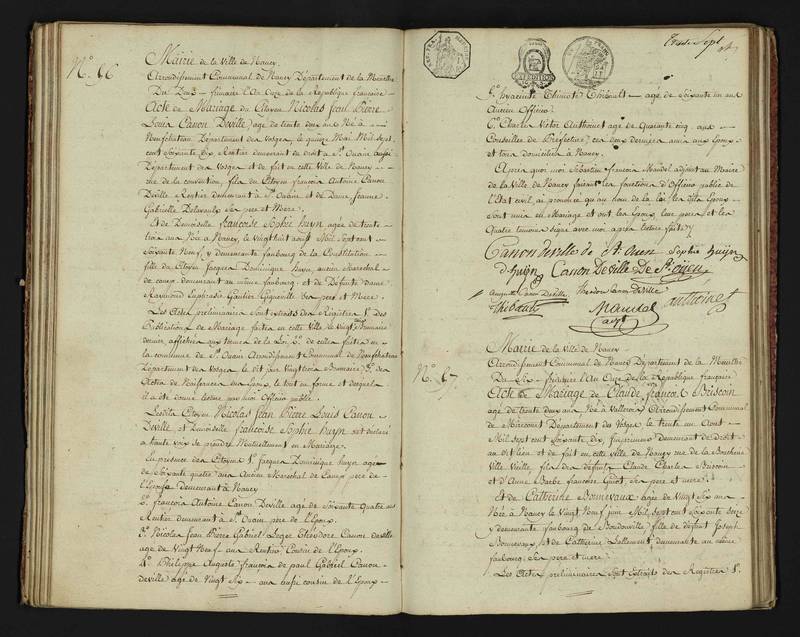 N.o 56
Mairie de la Ville de Nancy.
Arrondissement Communal de Nancy Département de la Meurthe
Du Deux frimaire l'An Onze de la République française
Acte de Mariage du Citoyen Nicolas Jean Pierre
Louis Canon Deville agé de trente deux ans Né à
Neufchateau Département des Vosges, le quinze Mai Mil Sept
cent Soixante dix Rentier demeurant de droit à St Ouain aussi
Département des Vosges et de fait en cette Ville de Nancy
rue de la convention, fils du Citoyen françois Antoine Canon
Deville Rentier demeurant à St Ouain et de Dame Jeanne
Gabrielle Ses pere et Mere.
Et de Demoiselle françoise Sophie huyn agée de trente
trois ans Née à Nancy, le Vingt huit aout Mil Sept cent
Soixante Neuf, y demeurante faubourg de la Constitution
fille du Citoyen Jacques Dominique huyn ancien Marechal
de camp demeurant au même faubourg, et de Défunte dame
Raymond Euphrasie Gautier Rigneville Ses pere et Mere.
Les Actes preliminaires Sont extraits des Registres 1.o des
Publications de Mariage faites en cette Ville le Vingt Brumaire
dernier, affichées aux termes de la Loi, 2.o de celles faites en
la commune de St Ouain Arrondissement Communal de Neufchateau
Département des Vosges le dit jour Vingt trois Brumaire 3.o des
Actes de Naissances des Epoux, le tout en forme et desquels
il a été donné lecture par moi Officier public.
Lesdits Citoyen Nicolas Jean Pierre Louis Canon
Deville et Demoiselle françoise Sophie huyn ont declaré
a haute voix se prendre Mutuellement en Mariage.
En presence des Citoyens 1.o Jacques Dominique huyn agé
de Soixante quatre ans Ancien Marechal de Camp pere de
l'Epouse demeurant à Nancy
2.o françois Antoine Canon Deville agé de Soixante Quatre ans
Rentier demeurant à St Ouain pere de l'Epoux.
3.o Nicolas Jean Pierre Gabriel Leger Théodore Canon deville
age de Vingt Neuf ans Rentier Cousin de l'Epoux.
4.o Philippe Auguste françois de paul Gabriel Canon
deville agé de Vingt Six ans aussi cousin de l'Epoux
EXPÉDITION
Trente Sept
hyacinte Thimoté Thibault agé de Soixante un ans
Ancien Officier
6.o Charles Victor Anthoinet agé de Quarante cinq ans
Conseiller de Préfecture, ces deux derniers amis aux Epoux
et tous domiciliés à Nancy.
Après quoi moi Sébastien françois Mandel adjoint au Maire
de la Ville de Nancy faisant les fonctions d'Officier public de
l'Etat civil, ai prononcé qu'au nom de la loi, les dits Epoux
Sont unis en Mariage et ont les Epoux, leurs peres et les
Quatre temoins signé avec moi après lecture faite
Canon deville de St Ouen Sophie huyn
D. huyn Canon Deville De St ouen
Auguste Canon Deville Theodore Canon deville
Thibault Mandel anthoinet
adjt
N.o 57.
Mairie de la Ville de Nancy
Arrondissement Communal de Nancy Département de la Meurthe
Du Six frimaire l'An Onze de la République française
Acte de Mariage de Claude françois Briscoin
agé de trente deux ans Né à Valleroy Arrondissement Communal
de Mirecourt Département des Vosges le trente un Aout
Mil Sept cent Soixante dix, demeurant de Droit
au dit lieu et de fait en cette ville de Nancy rue de la Boucherie
Ville Vieille, fils des défunts Claude Charles Briscoin
et d'Anne Barbe françoise Guiot, Ses pere et mere.
Et de Catherine Bonnevaux agée de Vingt Six ans
Née à Nancy le Vingt Neuf juin Mil Sept cent Soixante Seize
y demeurante faubourg de Boudonville fille de défunt Joseph
Bonnevaux, et de Catherine Lallement demeurante au même
faubourg Ses pere et mere.
Les Actes preliminaires Sont extraits des Registres 1.o